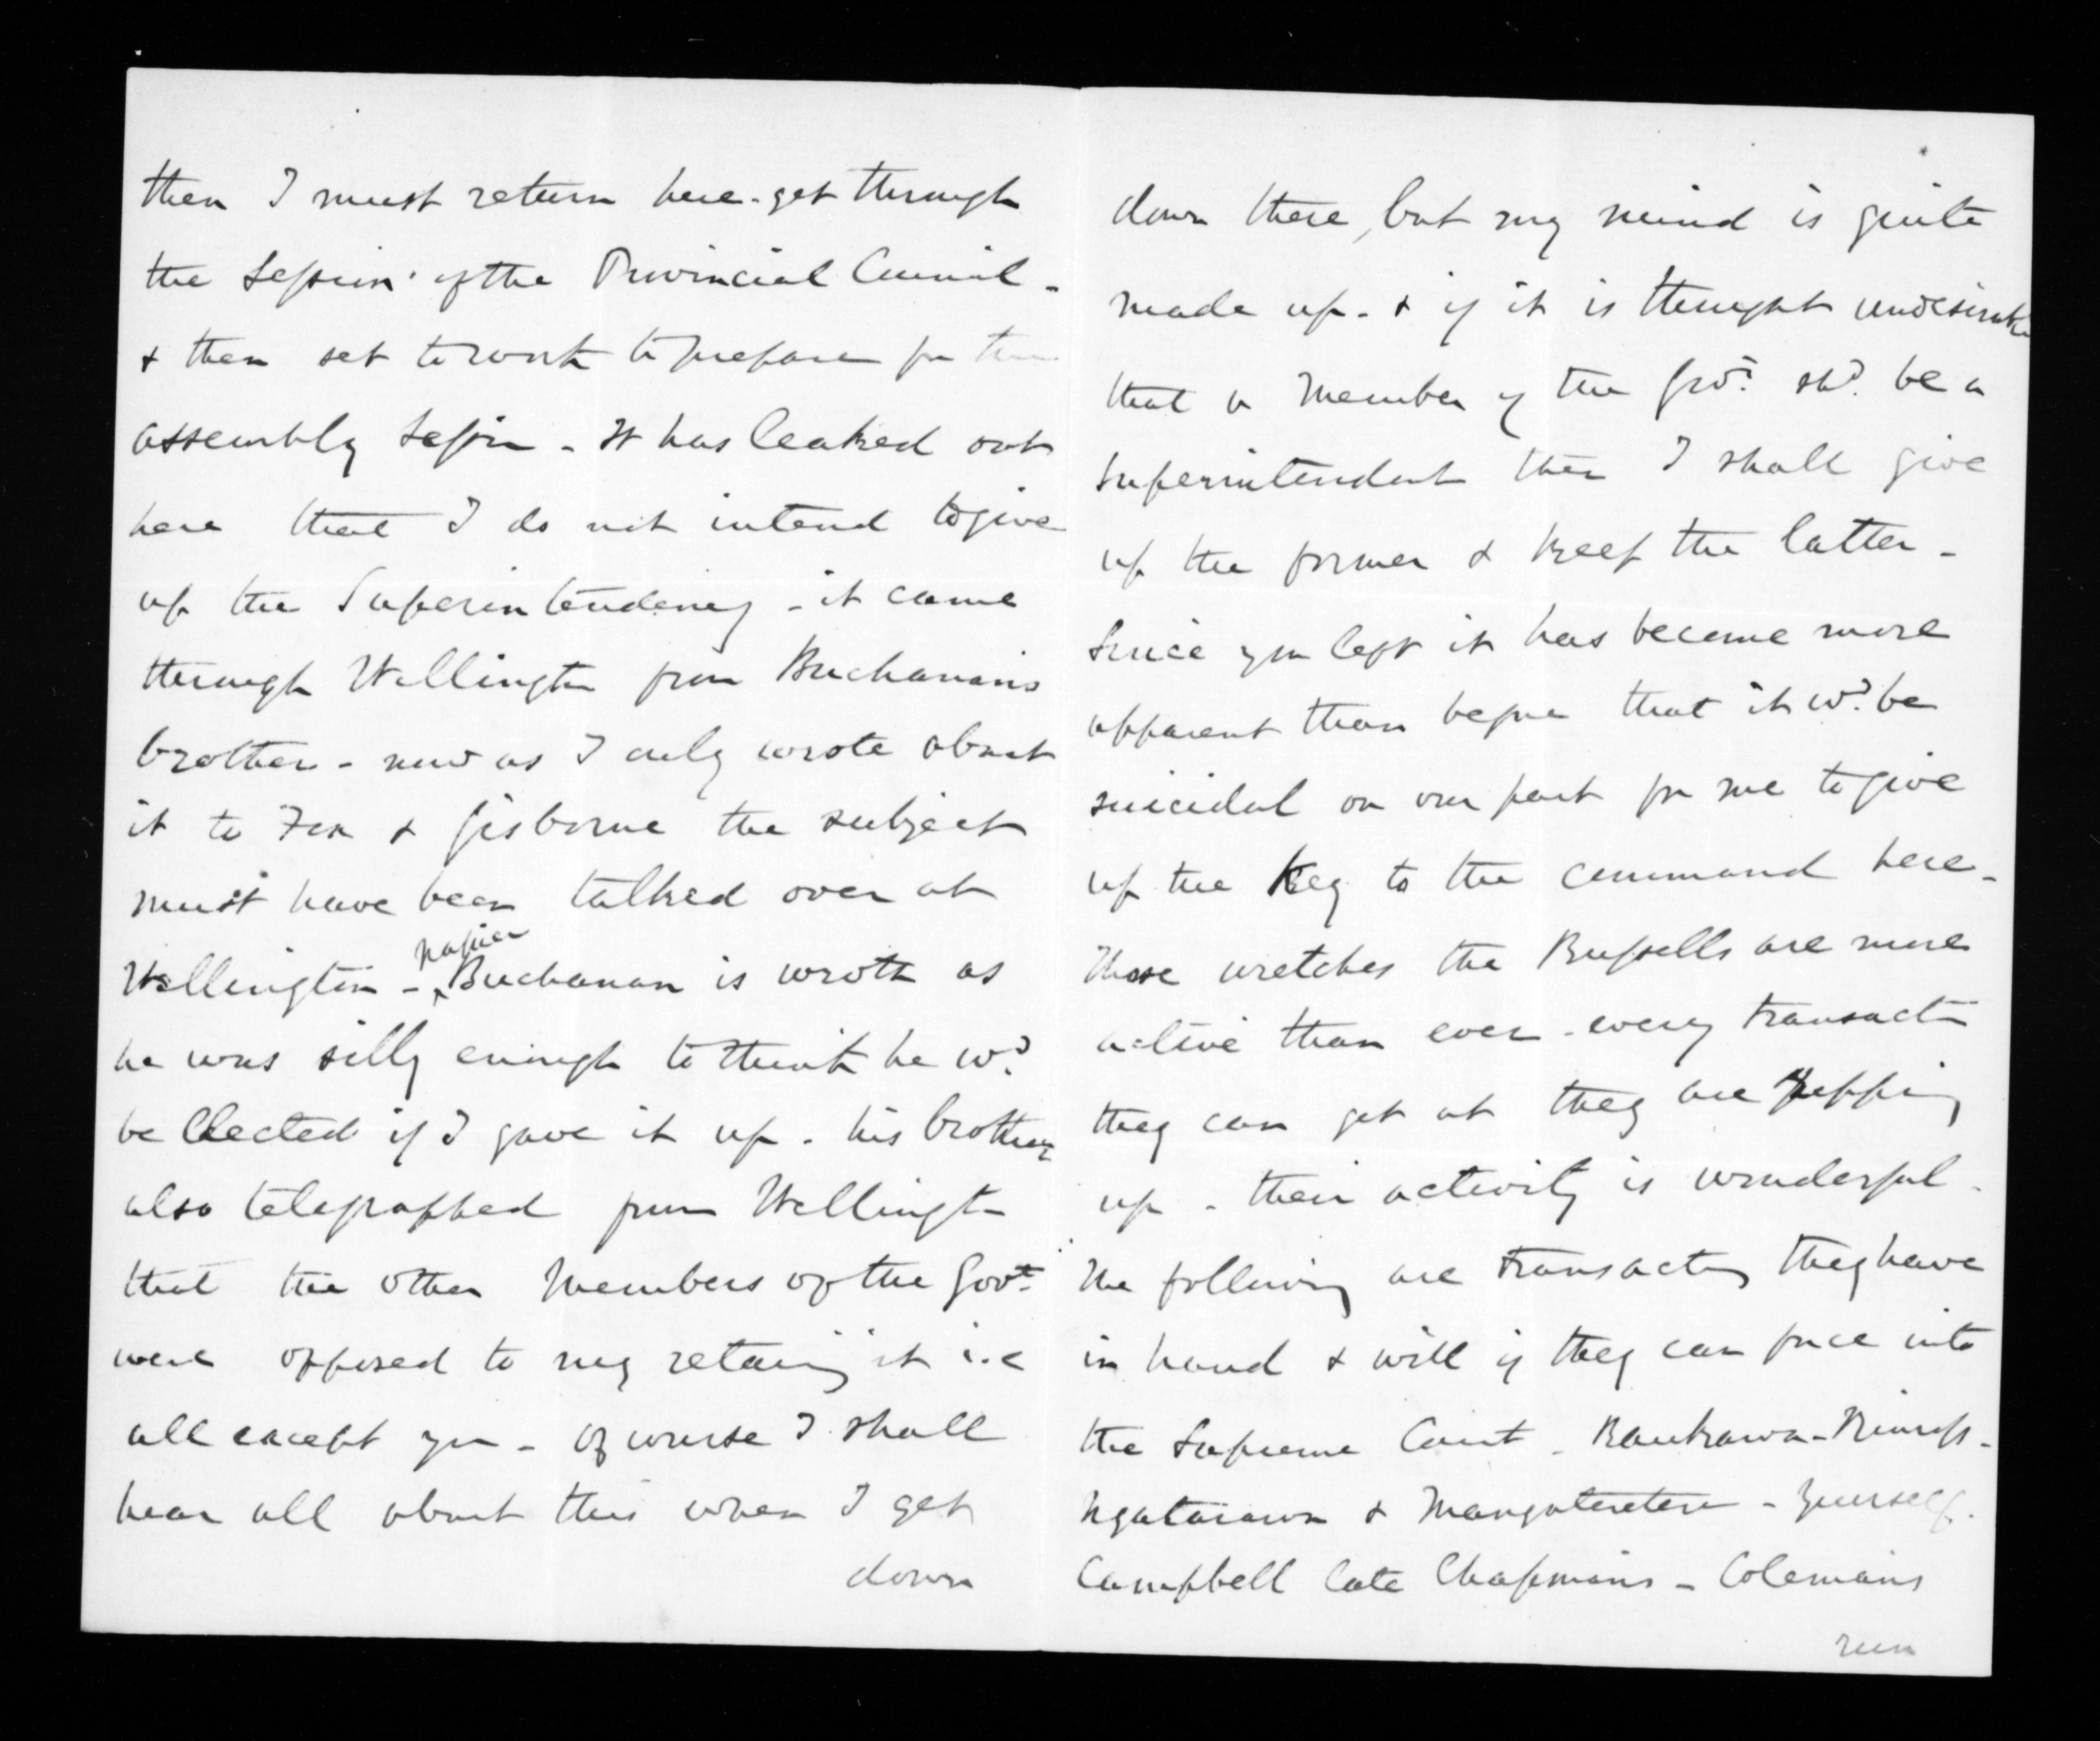 then I must return here - get through
the Session of the Provincial Council -
& then set to work to prepare for the
assembly Session - It has leaked out
here that I do not intend to give
up the Superintendency - it came
through Wellington from Buchanan's
brother - now as I only wrote about
it to Fox & Gisborne the subject
must have been talked over at
Wellington - Napier Buchanan is wroth as
he was silly enough to think he wd.
be Elected if I gave it up - his brother
also telegraphed from Wellington
that the other Members of the Govt.
were opposed to my retaining it i.e
all except you - of course I shall
hear all about this when I get
down
down there, but my mind is quite
made up - & if it is thought undesirable
that a Member of the Govt. shd. be a
Superintendent then I shall give
up the former & keep the latter -
Since you left it has become more
apparent than before that it wd. be
suicidal on our part for me to give
up the Key to the command here -
Those wretches the Russells are more
active than ever - every transactn
they can get at they are
up - their activity is wonderful -
The following are transactns they have
in hand & will if they can force into
the Supreme Court - Raukawa -
Ngatarawa & Mangateretere - Yourself -
Campbell late Chapmans - Colemans
run